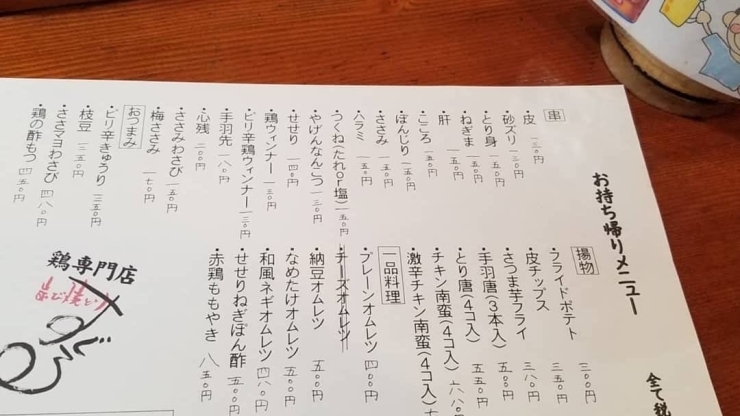 お持ち帰りメニュー
全て税
串
・皮 一三〇円
・砂ズリ 一三〇円
・とり身 一五〇円
・ねぎま 一五〇円
・肝 一五〇円
・こころ 一五〇円
・ぼんじり 一五〇円
・ささみ 一五〇円
・ハラミ 一五〇円
・つくね(たれor塩) 一五〇円
・やげんなんこつ 一三〇円
・せせり 一四〇円
・鶏ウィンナー 一三〇円
・ピリ辛鶏ウィンナー 一三〇円
・手羽先 一八〇円
・心残 二〇〇円
・ささみわさび 一五〇円
・梅ささみ 一七〇円
おつまみ
・ピリ辛きゅうり 三五〇円
・枝豆 三五〇円
・ささマヨわさび 四八〇円
・鶏の酢もつ 四五〇円
揚物
・フライドポテト 三〇〇円
・皮チップス 三五〇円
・さつま芋フライ 三八〇円
・手羽唐(3本入) 五五〇円
・とり唐(4コ入) 五五〇円
・チキン南蛮(4コ入) 六八〇円
・激辛チキン南蛮(4コ入)
一品料理
・プレーンオムレツ 四〇〇円
・チーズオムレツ
・納豆オムレツ 五〇〇円
・なめたけオムレツ 五〇〇円
・和風ネギオムレツ 四八〇円
・せせりねぎぽん酢 五〇〇円
・赤鶏ももやき 八五〇円
鶏専門店